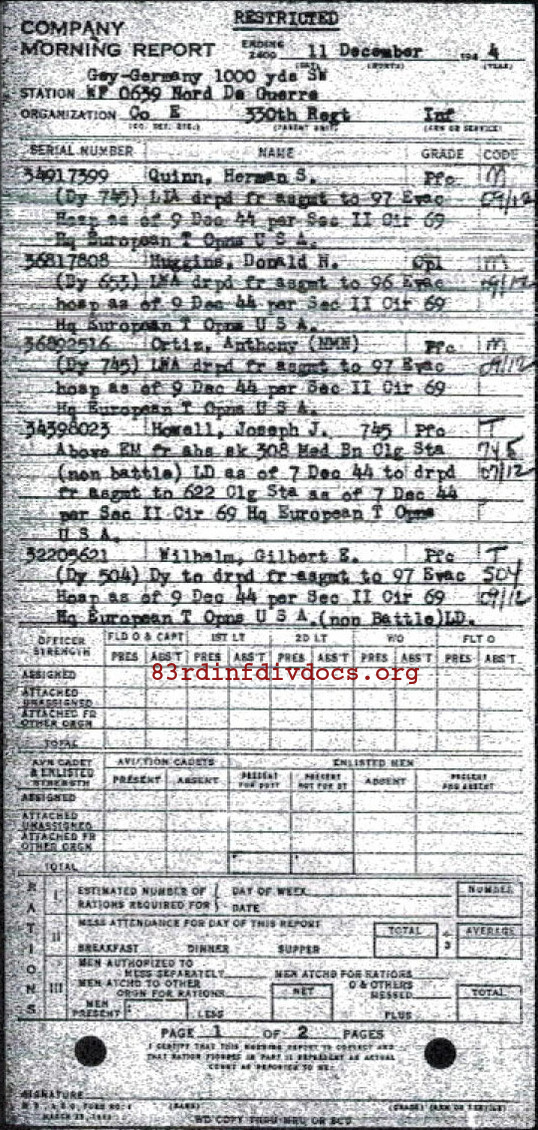 RESTRICTED
COMPANY
MORNING REPORT ENDING 2400 11 December 194 4
(DAY) (MONTH) (YEAR)
Gey-Germany 1000 yds SW
STATION WF 0639 Nord De Guerre
ORGANIZATION Co E 330th Regt Inf
(CO. DET. ETC.) (PARENT UNIT) (ARM OR SERVICE)
SERIAL NUMBER NAME GRADE CODE
34917399 Quinn, Herman S. Pfc M
(Dy 745) LIA drpd fr asgmt to 97 Evac 09/12
Hosp as of 9 Dec 44 per Sec II Cir 69
Hq European T Opns U S A.
36817808 Huggins, Donald H. Cpl M
(Dy 653) LWA drpd fr asgmt to 96 Evac 09/12
hosp as of 9 Dec 44 per Sec II Cir 69
Hq European T Opns U S A.
36802516 Ortiz, Anthony (NMN) Pfc M
(Dy 745) LWA drpd fr asgmt to 97 Evac 09/12
hosp as of 9 Dec 44 per Sec II Cir 69
Hq European T Opns U S A.
34398023 Howell, Joseph J. 745 Pfc T
Above EM fr abs sk 308 Med Bn Clg Sta 745
(non battle) LD as of 7 Dec 44 to drpd 07/12
fr asgmt to 622 Clg Sta as of 7 Dec 44
per Sec II Cir 69 Hq European T Opns
U S A.
32205621 Wilhelm, Gilbert E. Pfc T
(Dy 504) Dy to drpd fr asgmt to 97 Evac 504
Hosp as of 9 Dec 44 per Sec II Cir 69 09/12
Hq European T Opns U S A.(non Battle)LD.
OFFICER STRENGTH FLD O & CAPT 1ST LT 2D LT W/O FLT O
PRES ABS'T PRES ABS'T PRES ABS'T PRES ABS'T PRES ABS'T
83rdinfdivdocs.org
ASSIGNED
ATTACHED UNASSIGNED
ATTACHED FR OTHER ORGN
TOTAL
AVN CADET & ENLISTED STRENGTH AVIATION CADETS ENLISTED MEN
PRESENT ABSENT PRESENT FOR DUTY PRESENT NOT FOR DY ABSENT PRESENT AND ABSENT
ASSIGNED
ATTACHED UNASSIGNED
ATTACHED FR OTHER ORGN
TOTAL
RATIONS
I ESTIMATED NUMBER OF RATIONS REQUIRED FOR DAY OF WEEK DATE NUMBER
II MESS ATTENDANCE FOR DAY OF THIS REPORT TOTAL ÷ 3 AVERAGE
BREAKFAST DINNER SUPPER
III MEN AUTHORIZED TO MESS SEPARATELY MEN ATCHD FOR RATIONS
MEN ATCHD TO OTHER ORGN FOR RATIONS NET O & OTHERS MESSED TOTAL
MEN PRESENT LESS PLUS
PAGE 1 OF 2 PAGES
I CERTIFY THAT THIS MORNING REPORT IS CORRECT AND
THAT RATION FIGURES IN PART II REPRESENT AN ACTUAL
COUNT AS REPORTED TO ME:
SIGNATURE
(NAME) (GRADE) (ARM OR SERVICE)
WD COPY THRU MRU OR SCU